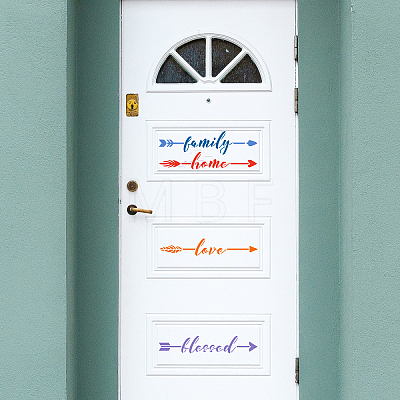 family
home
MBF
love
blessed